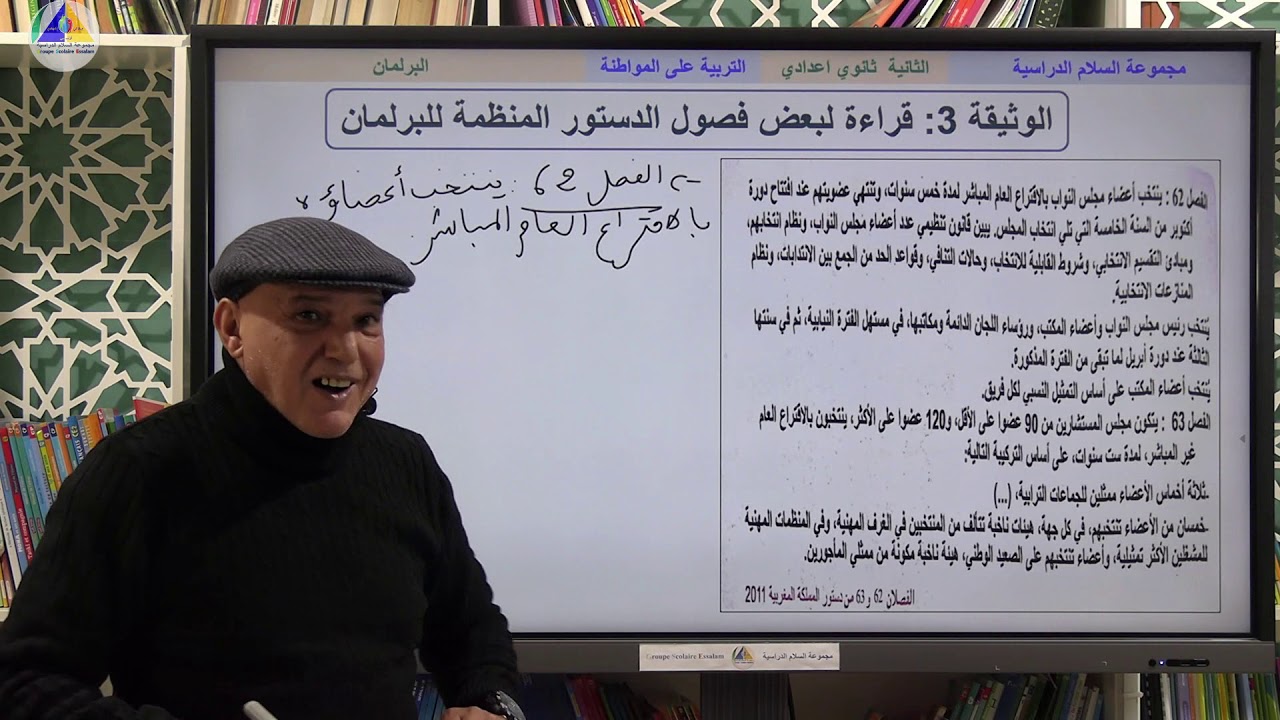 مجموعة السلام الدراسية
Groupe Scolaire Essalam
مجموعة السلام الدراسية
الثانية ثانوي اعدادي
التربية على المواطنة
البرلمان
الوثيقة 3: قراءة لبعض فصول الدستور المنظمة للبرلمان
الفصل 62 : ينتخب أعضاؤه
بالاقتراع العام المباشر
الفصل 62 : ينتخب أعضاء مجلس النواب بالاقتراع العام المباشر لمدة خمس سنوات، وتنتهي عضويتهم عند افتتاح دورة
أكتوبر من السنة الخامسة التي تلي انتخاب المجلس. يبين قانون تنظيمي عدد أعضاء مجلس النواب، ونظام انتخابهم،
ومبادئ التقسيم الانتخابي، وشروط القابلية للانتخاب، وحالات التنافي، وقواعد الحد من الجمع بين الانتدابات، ونظام
المنازعات الانتخابية.
يُنتخب رئيس مجلس النواب وأعضاء المكتب، ورؤساء اللجان الدائمة ومكاتبها، في مستهل الفترة النيابية، ثم في سنتها
الثالثة عند دورة أبريل لما تبقى من الفترة المذكورة.
يُنتخب أعضاء المكتب على أساس التمثيل النسبي لكل فريق.
الفصل 63 : يتكون مجلس المستشارين من 90 عضوا على الأقل، و120 عضوا على الأكثر، ينتخبون بالاقتراع العام
غير المباشر، لمدة ست سنوات، على أساس التركيبة التالية:
-ثلاثة أخماس الأعضاء ممثلين للجماعات الترابية، (...)
-خمسان من الأعضاء تنتخبهم، في كل جهة، هيئات ناخبة تتألف من المنتخبين في الغرف المهنية، وفي المنظمات المهنية
للمشغلين الأكثر تمثيلية، وأعضاء تنتخبهم على الصعيد الوطني، هيئة ناخبة مكونة من ممثلي المأجورين.
الفصلان 62 و 63 من دستور المملكة المغربية 2011
Groupe Scolaire Essalam
مجموعة السلام الدراسية